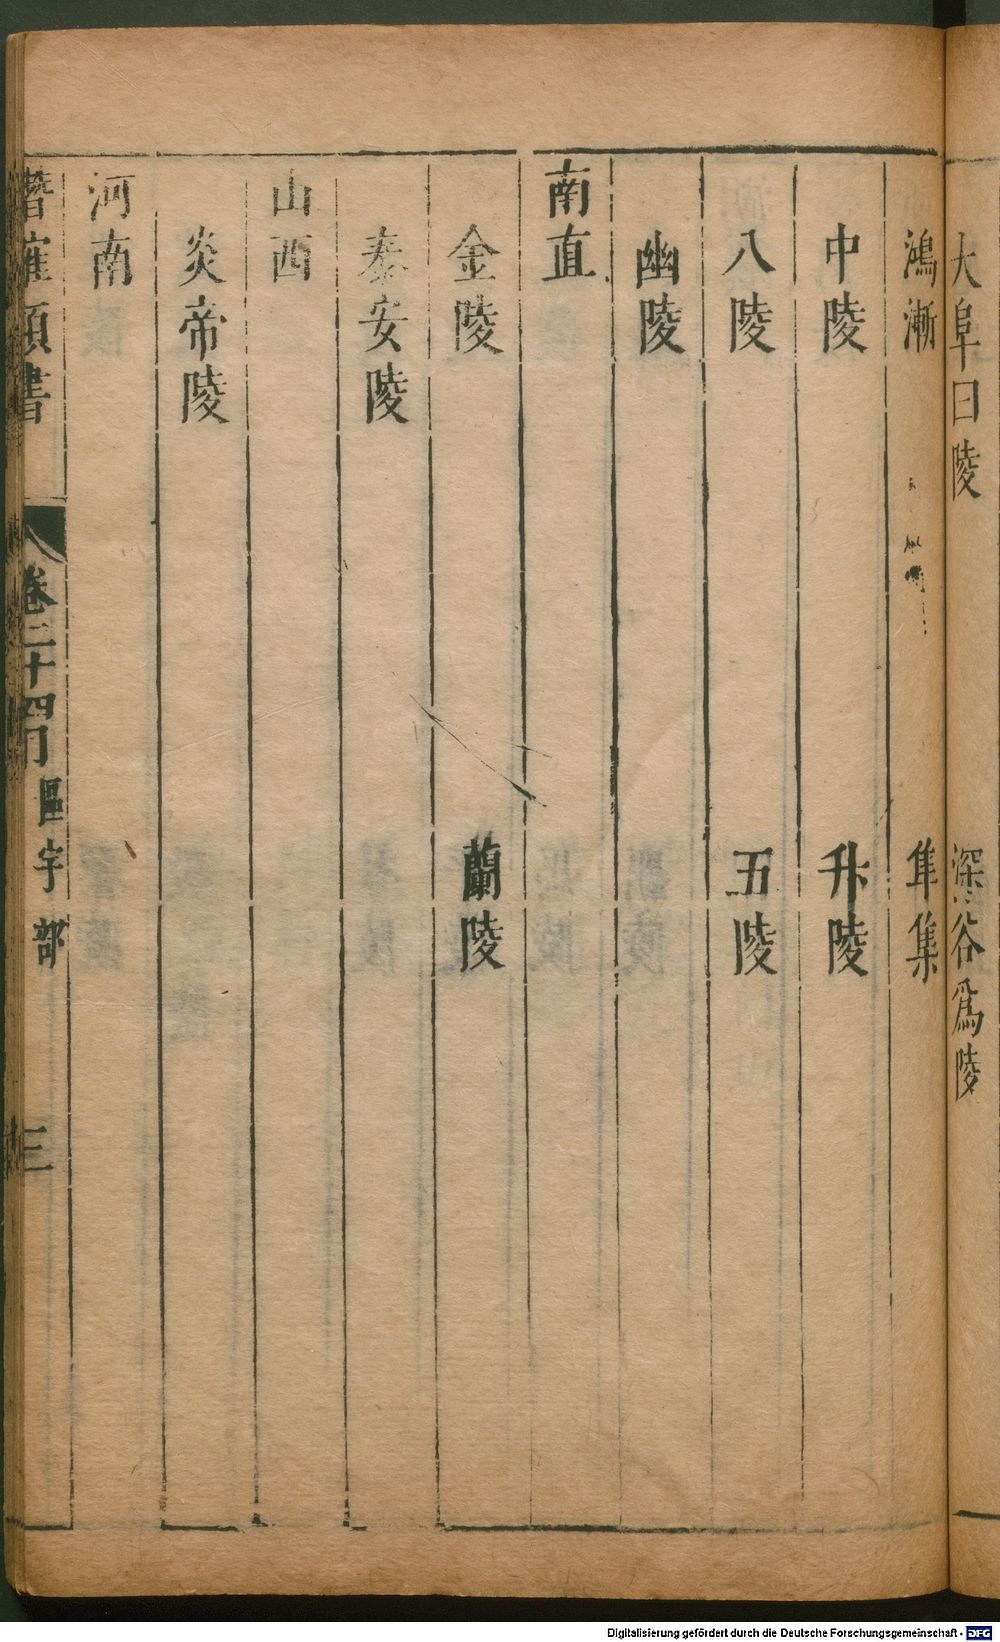 大阜曰陵　深谷爲陵
鴻漸　隼集
中陵　升陵
八陵　五陵
幽陵
南直
金陵　蘭陵
泰安陵
山西
炎帝陵
河南
潛確類書　卷二十四　區宇部　三
Digitalisierung gefördert durch die Deutsche Forschungsgemeinschaft - DFG